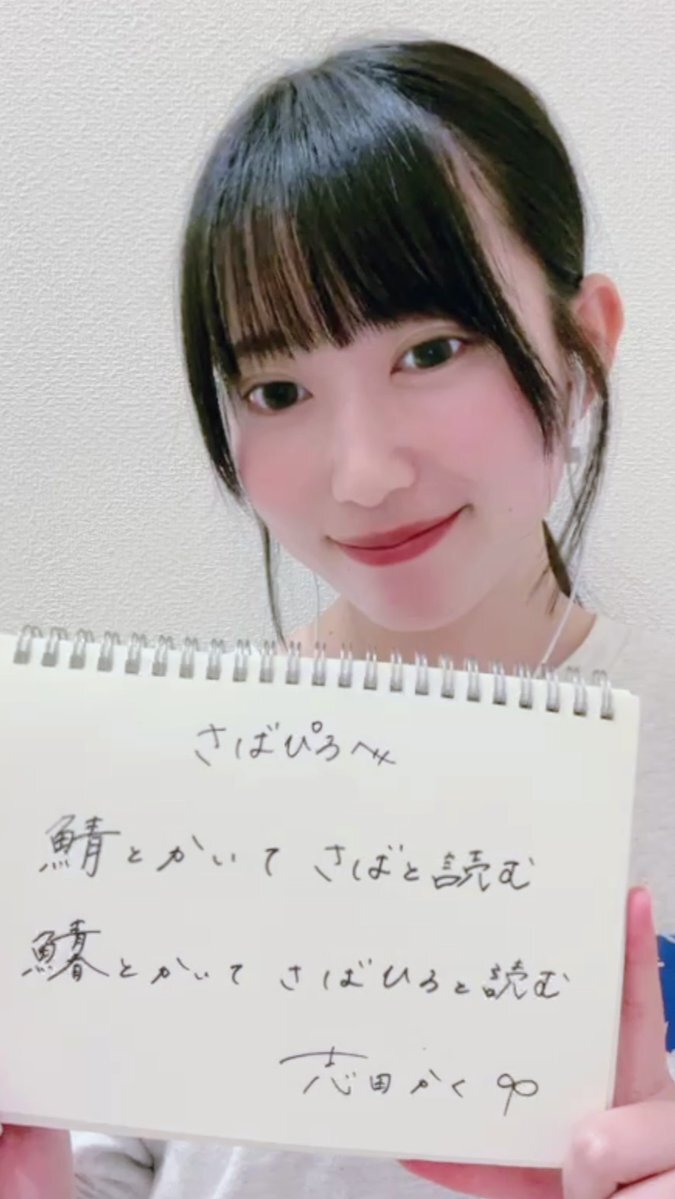 さばぴろへ
鯖とかいて さばと読む
とかいて さばひろと読む
志田かく